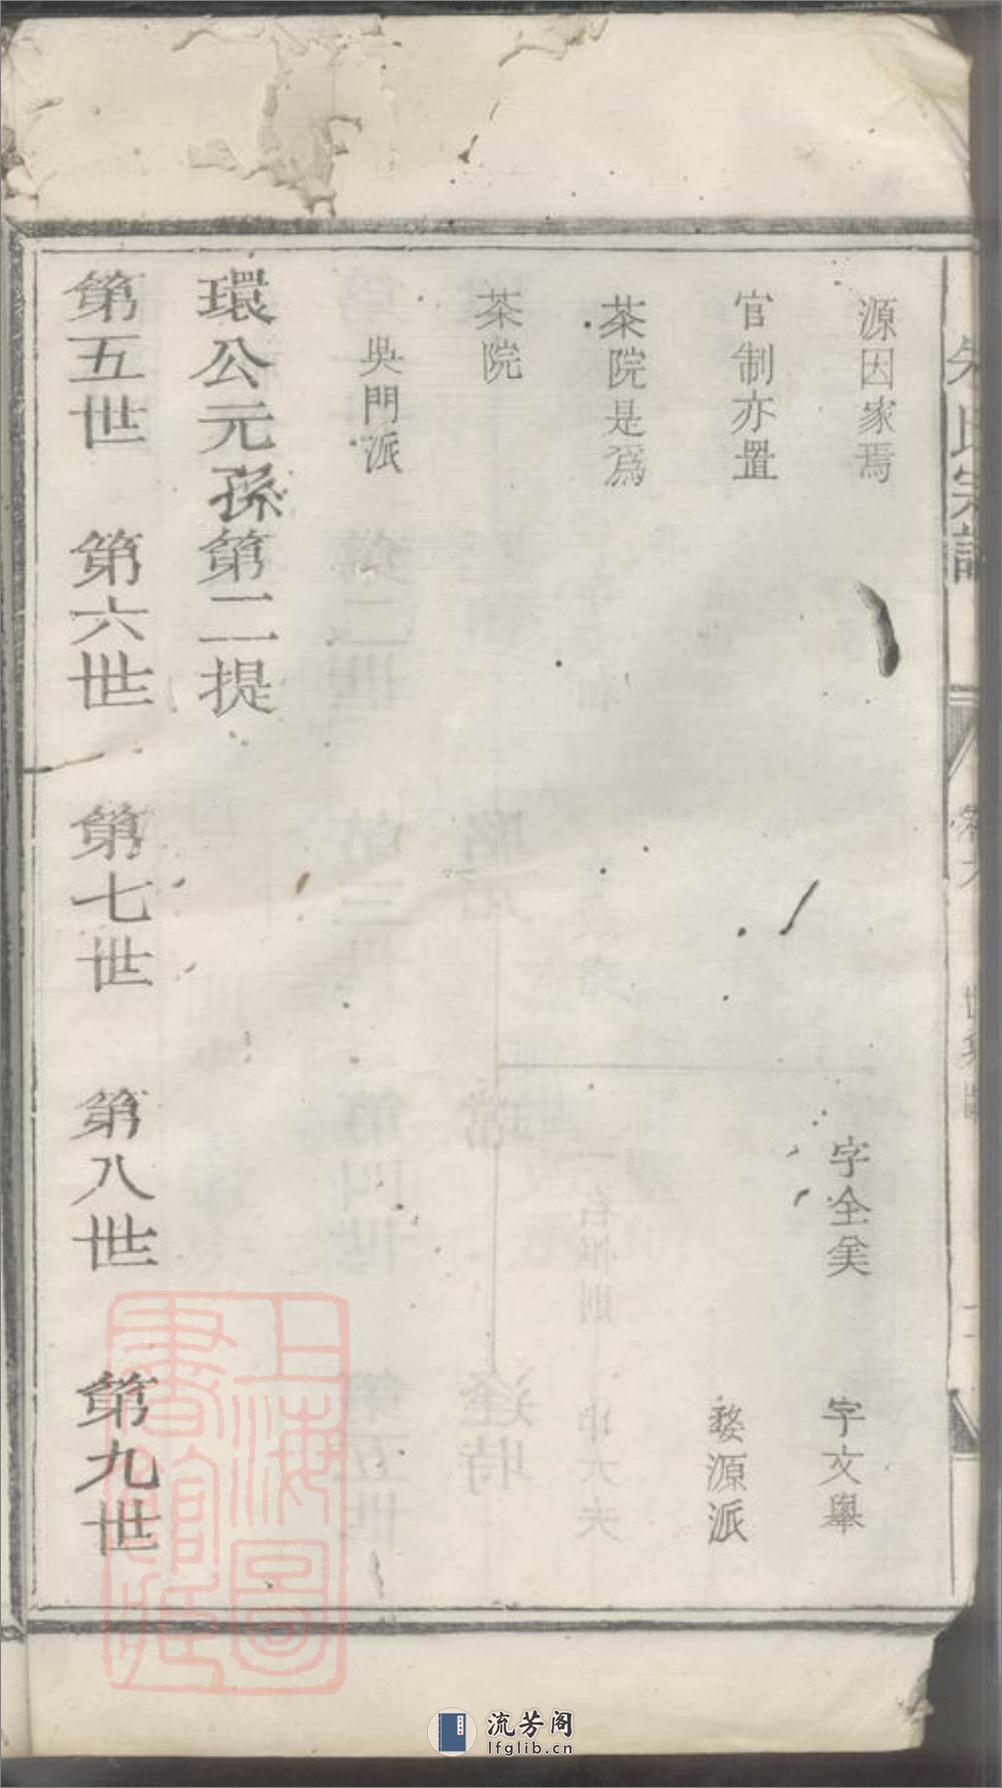 朱氏宗譜
卷六
源因家焉
字全矣
字文舉
官制亦置
婺源派
茶院是爲
茶院
吳門派
環公元孫第二提
第五世 第六世 第七世 第八世 第九世
上海圖書館藏
流芳阁
lfglib.cn